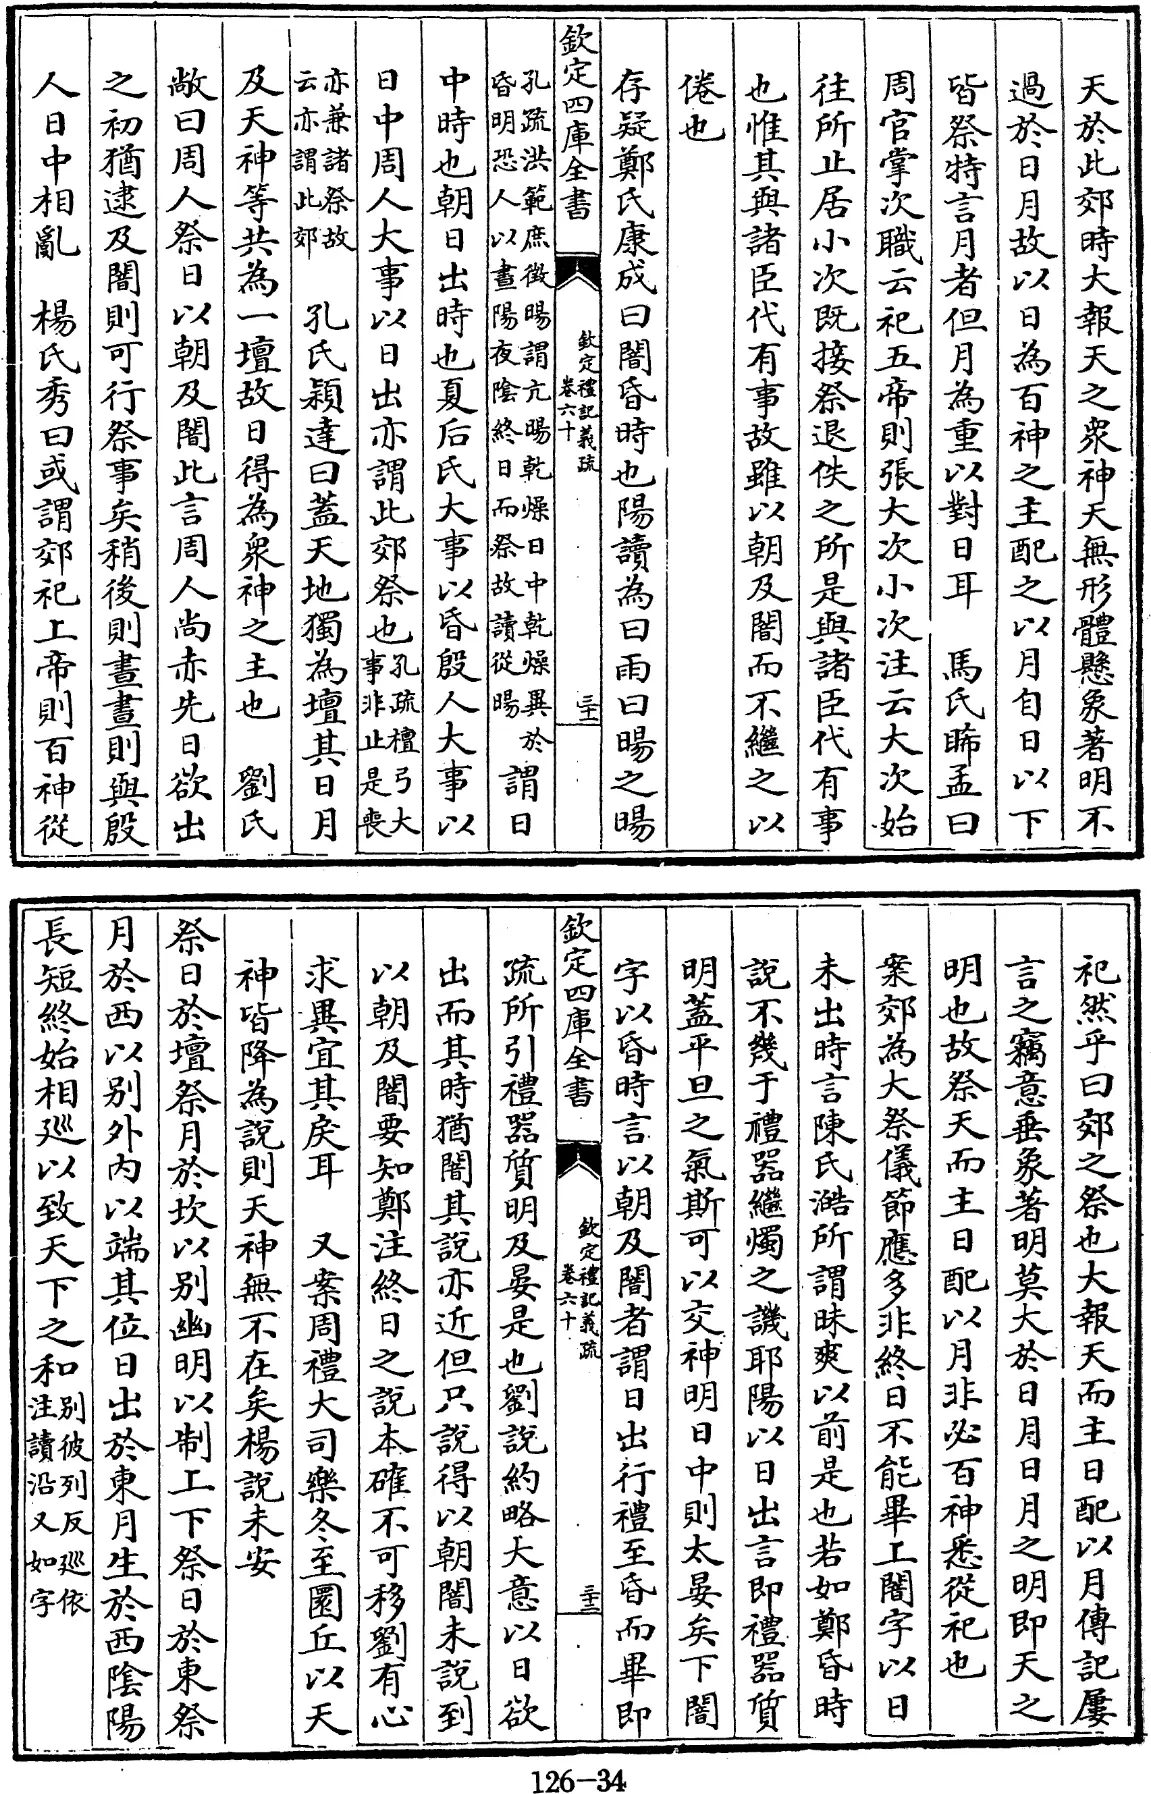 天於此郊時大報天之衆神天無形體懸象著明不
過於日月故以日為百神之主配之以月自日以下
皆祭特言月者但月為重以對日耳　馬氏晞孟曰
周官掌次職云祀五帝則張大次小次注云大次始
往所止居小次既接祭退佚之所是與諸臣代有事
也惟其與諸臣代有事故雖以朝及闇而不繼之以
倦也
存疑鄭氏康成曰闇昏時也陽讀為曰雨曰暘之暘
欽定四庫全書
欽定禮記義疏
卷六十
三十二
孔疏洪範庶徵暘謂亢暘乾燥日中乾燥異於
昏明恐人以晝陽夜陰終日而祭故讀從暘
謂日
中時也朝日出時也夏后氏大事以昏殷人大事以
日中周人大事以日出亦謂此郊祭也
孔疏檀弓大
事非止是喪
亦兼諸祭故
云亦謂此郊
孔氏穎達曰蓋天地獨為壇其日月
及天神等共為一壇故日得為衆神之主也　劉氏
敞曰周人祭日以朝及闇此言周人尚赤先日欲出
之初猶逮及闇則可行祭事矣稍後則晝晝則與殷
人日中相亂　楊氏秀曰或謂郊祀上帝則百神從
祀然乎曰郊之祭也大報天而主日配以月傳記屢
言之竊意垂象著明莫大於日月日月之明即天之
明也故祭天而主日配以月非必百神悉從祀也
案郊為大祭儀節應多非終日不能畢工闇字以日
未出時言陳氏澔所謂昧爽以前是也若如鄭昏時
說不幾于禮器繼燭之譏耶陽以日出言即禮器質
明蓋平旦之氣斯可以交神明日中則太晏矣下闇
字以昏時言以朝及闇者謂日出行禮至昏而畢即
欽定四庫全書
欽定禮記義疏
卷六十
三十三
疏所引禮器質明及晏是也劉說約略大意以日欲
出而其時猶闇其說亦近但只說得以朝闇未說到
以朝及闇要知鄭注終日之說本確不可移劉有心
求異宜其戾耳　又案周禮大司樂冬至圜丘以天
神皆降為說則天神無不在矣楊說未安
祭日於壇祭月於坎以別幽明以制上下祭日於東祭
月於西以別外內以端其位日出於東月生於西陰陽
長短終始相廵以致天下之和
別彼列反廵依
注讀沿又如字
126-34